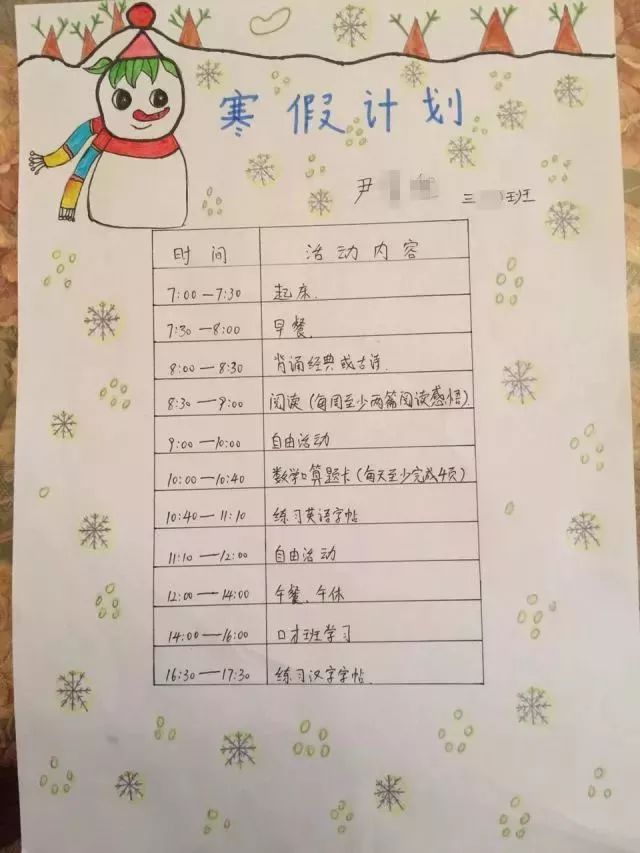 寒假计划
尹 三 班
时间 活动内容
7:00—7:30 起床.
7:30—8:00 早餐.
8:00—8:30 背诵经典或古诗.
8:30—9:00 阅读(每周至少两篇阅读感悟)
9:00—10:00 自由活动
10:00—10:40 数学口算题卡(每天至少完成4页)
10:40—11:10 练习英语字帖
11:10—12:00 自由活动
12:00—14:00 午餐、午休
14:00—16:00 口才班学习
16:30—17:30 练习汉字字帖.